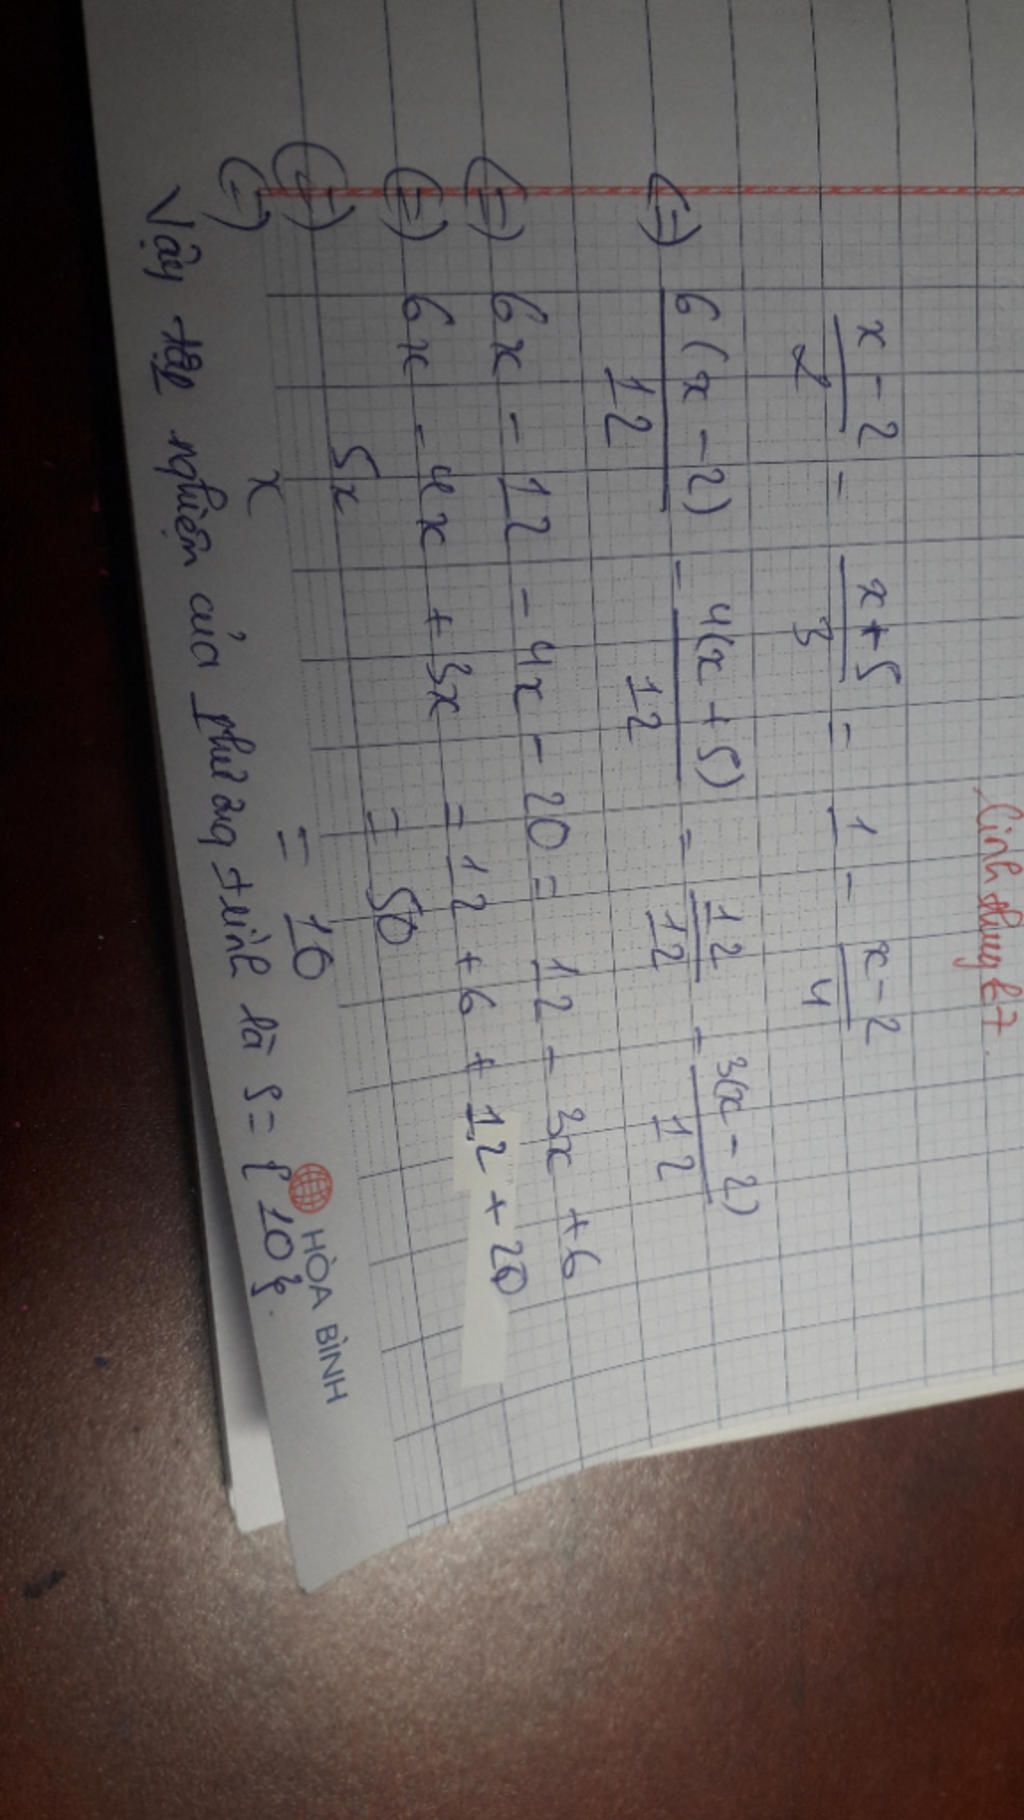 x-2/2 - x+5/3 = 1 - x-2/4
(=) 6(x-2)/12 - 4(x+5)/12 = 12/12 - 3(x-2)/12
(=) 6x - 12 - 4x - 20 = 12 - 3x + 6
(=) 6x - 4x + 3x = 12 + 6 + 12 + 20
(=) 5x = 50
(=) x = 10
Vậy tập nghiệm của phương trình là S = {10}.
HÒA BÌNH